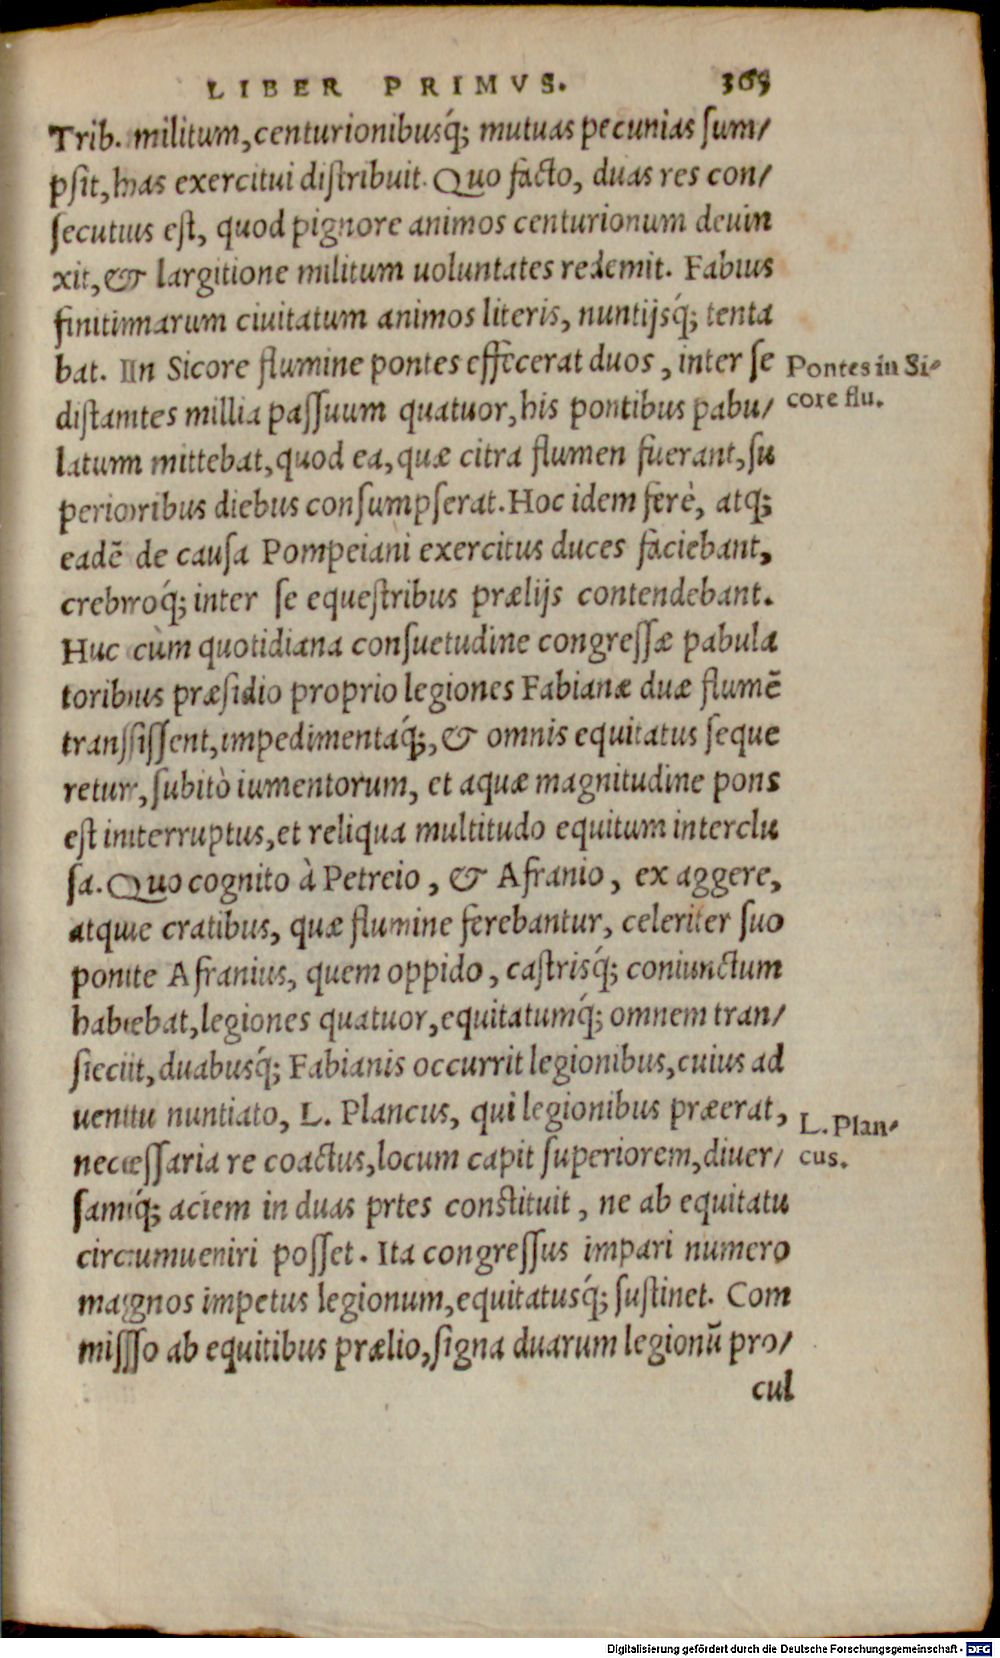 LIBER PRIMVS. 365
Trib. militum, centurionibusq́; mutuas pecunias sum/
psit, has exercitui distribuit. Quo facto, duas res con/
secutus est, quod pignore animos centurionum deuin
xit, & largitione militum uoluntates redemit. Fabius
finitimarum ciuitatum animos literis, nuntijsq́; tenta
bat. In Sicore flumine pontes effecerat duos, inter se
distantes millia passuum quatuor, his pontibus pabu/
latum mittebat, quod ea, quæ citra flumen fuerant, su
perioribus diebus consumpserat. Hoc idem ferè, atq;
eadē de causa Pompeiani exercitus duces faciebant,
crebroq́; inter se equestribus prælijs contendebant.
Huc cùm quotidiana consuetudine congressæ pabula
toribus præsidio proprio legiones Fabianæ duæ flumē
transissent, impedimentaq́;, & omnis equitatus seque
retur, subitò iumentorum, et aquæ magnitudine pons
est interruptus, et reliqua multitudo equitum interclu
sa. Quo cognito à Petreio, & Afranio, ex aggere,
atque cratibus, quæ flumine ferebantur, celeriter suo
ponte Afranius, quem oppido, castrisq́; coniunctum
habebat, legiones quatuor, equitatumq́; omnem tran/
siecit, duabusq́; Fabianis occurrit legionibus, cuius ad
uentu nuntiato, L. Plancus, qui legionibus præerat,
necessaria re coactus, locum capit superiorem, diuer/
samq́; aciem in duas prtes constituit, ne ab equitatu
circumueniri posset. Ita congressus impari numero
magnos impetus legionum, equitatusq́; sustinet. Com
misso ab equitibus prælio, signa duarum legionū pro/
cul
Pontes in Si-
core flu.
L. Plan-
cus.
Digitalisierung gefördert durch die Deutsche Forschungsgemeinschaft - DFG